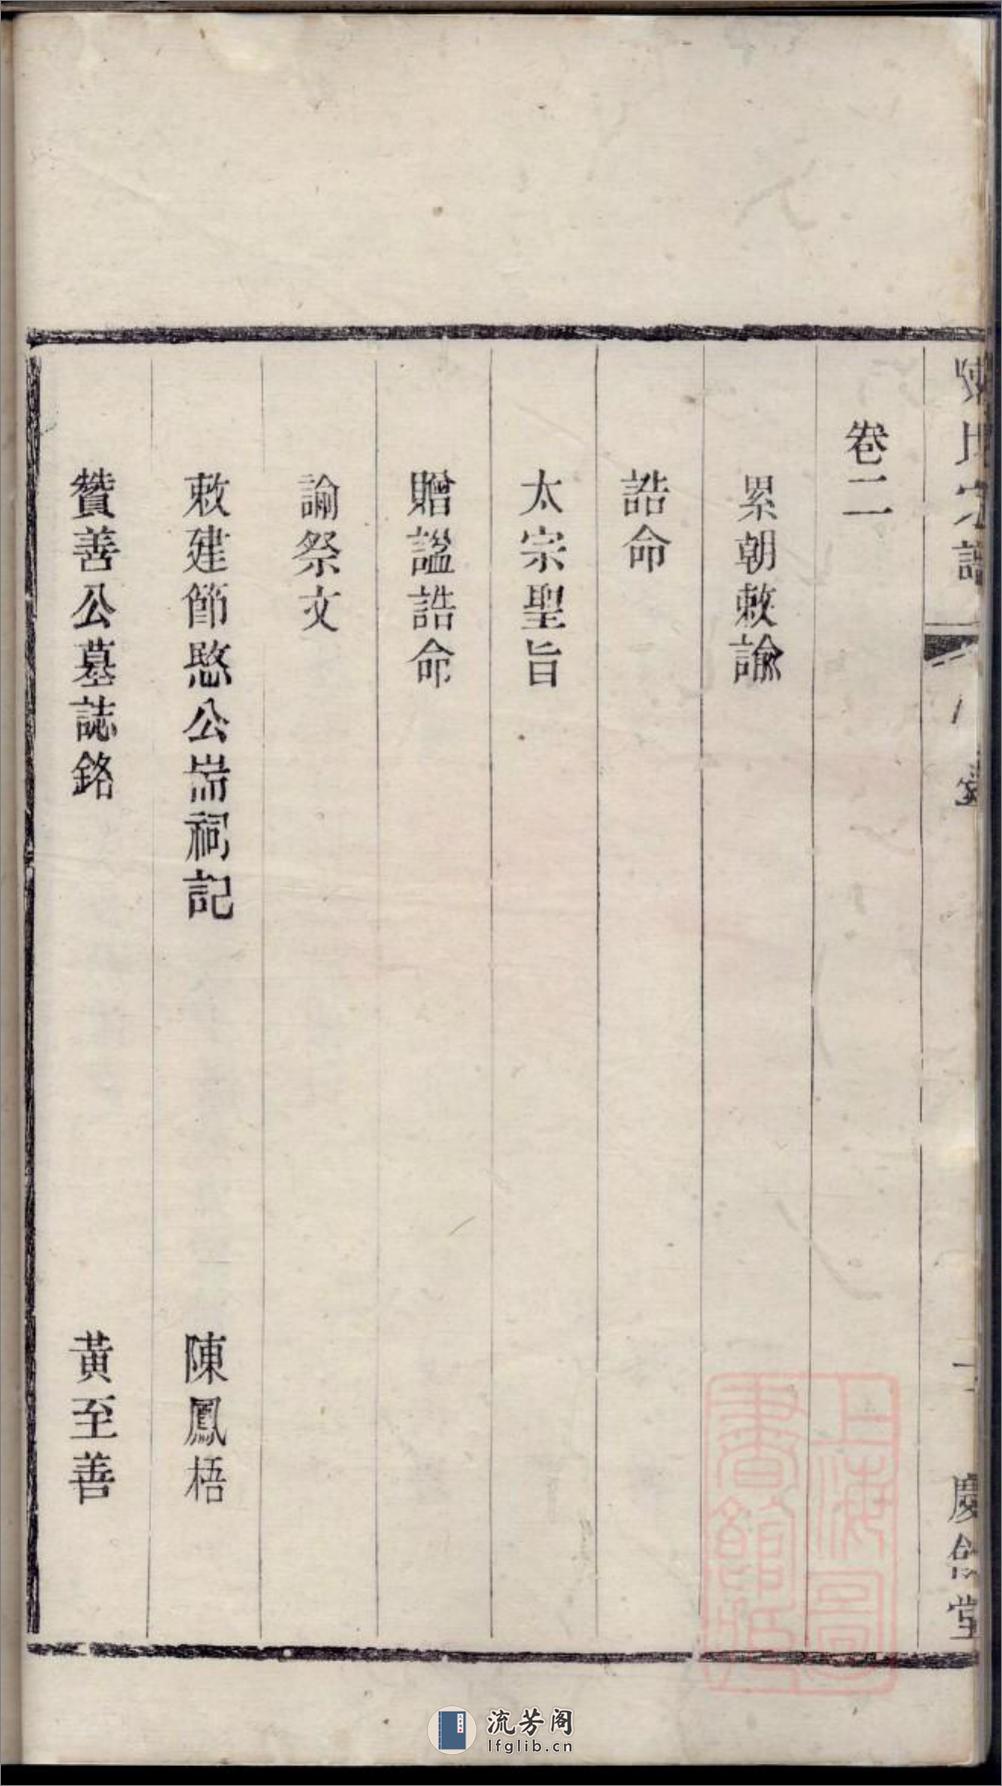 卷二
累朝敕諭
誥命
太宗聖旨
贈諡誥命
諭祭文
敕建節愍公耑祠記 陳鳳梧
贊善公墓誌銘 黃至善
上海圖書館藏
流芳阁
lfglib.cn